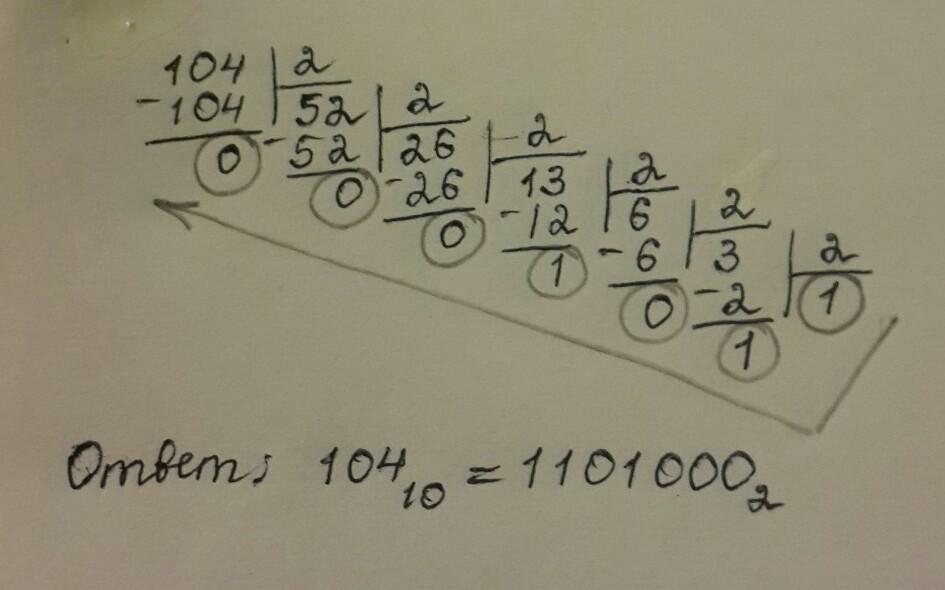 104 2
-104 52 2
0 -52 26 -2
0 -26 13 2
0 -12 6 2
1 -6 3 2
0 -2 1
1
Ответ: 104₁₀ = 1101000₂